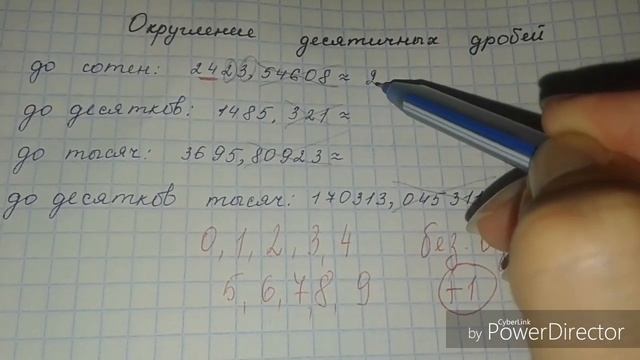 Округление десятичных дробей
до сотен: 2423,54608 ≈ 2
до десятков: 1485,321 ≈
до тысяч: 3695,80923 ≈
до десятков тысяч: 170313,04531
0, 1, 2, 3, 4 без
5, 6, 7, 8, 9 +1
CyberLink
by PowerDirector